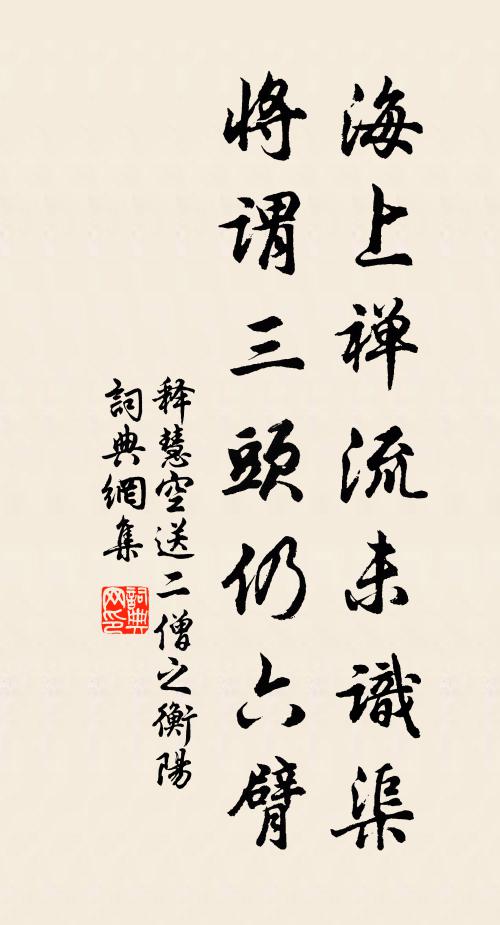 海上禅流未識渠
將謂三頭仍六臂
释慧空送二僧之衡陽
詞典網集
詞典网印